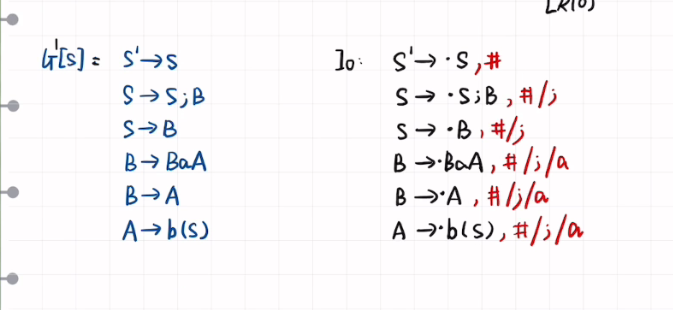 LR(0)
G'[S] = S' → S
S → S;B
S → B
B → BaA
B → A
A → b(S)
I₀: S' → ·S, #
S → ·S;B, #/;
S → ·B, #/;
B → ·BaA, #/;/a
B → ·A, #/;/a
A → ·b(S), #/;/a